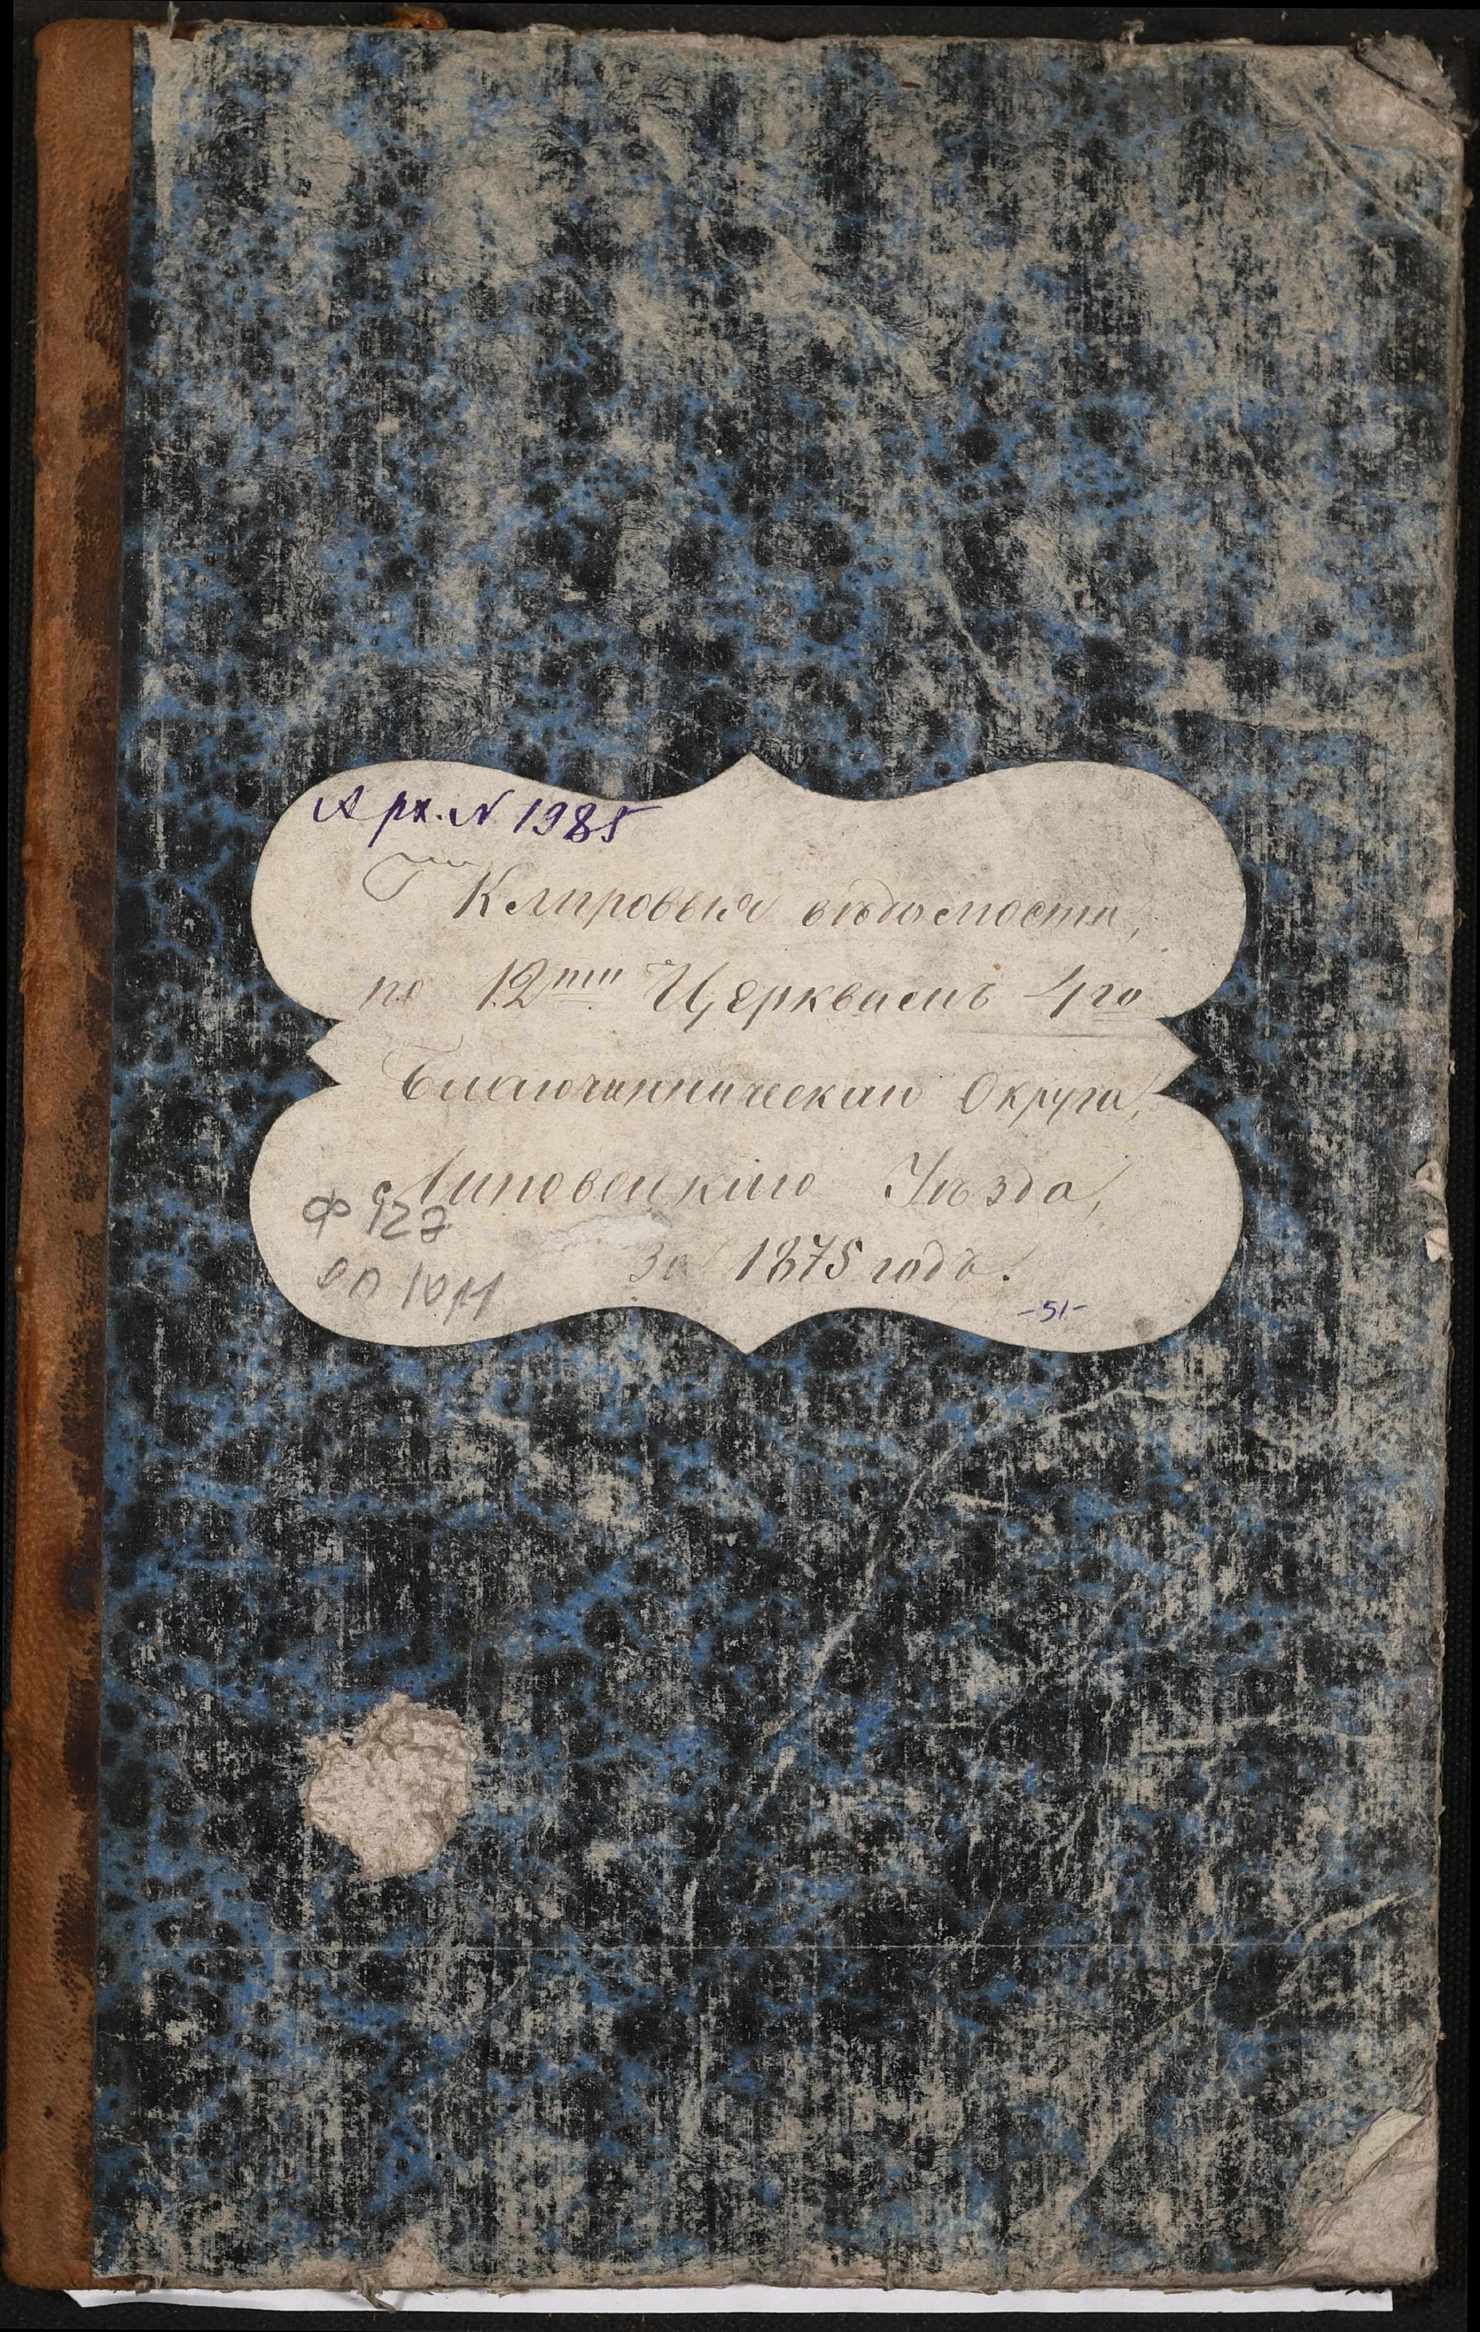 Арх. N 1985
Клировыя вѣдомости,
по 12ти Церквамъ 4го
Благочинническаго Округа,
Липовецкаго Уѣзда,
ф 127
за 1875 годъ.
оп 1011
-51-